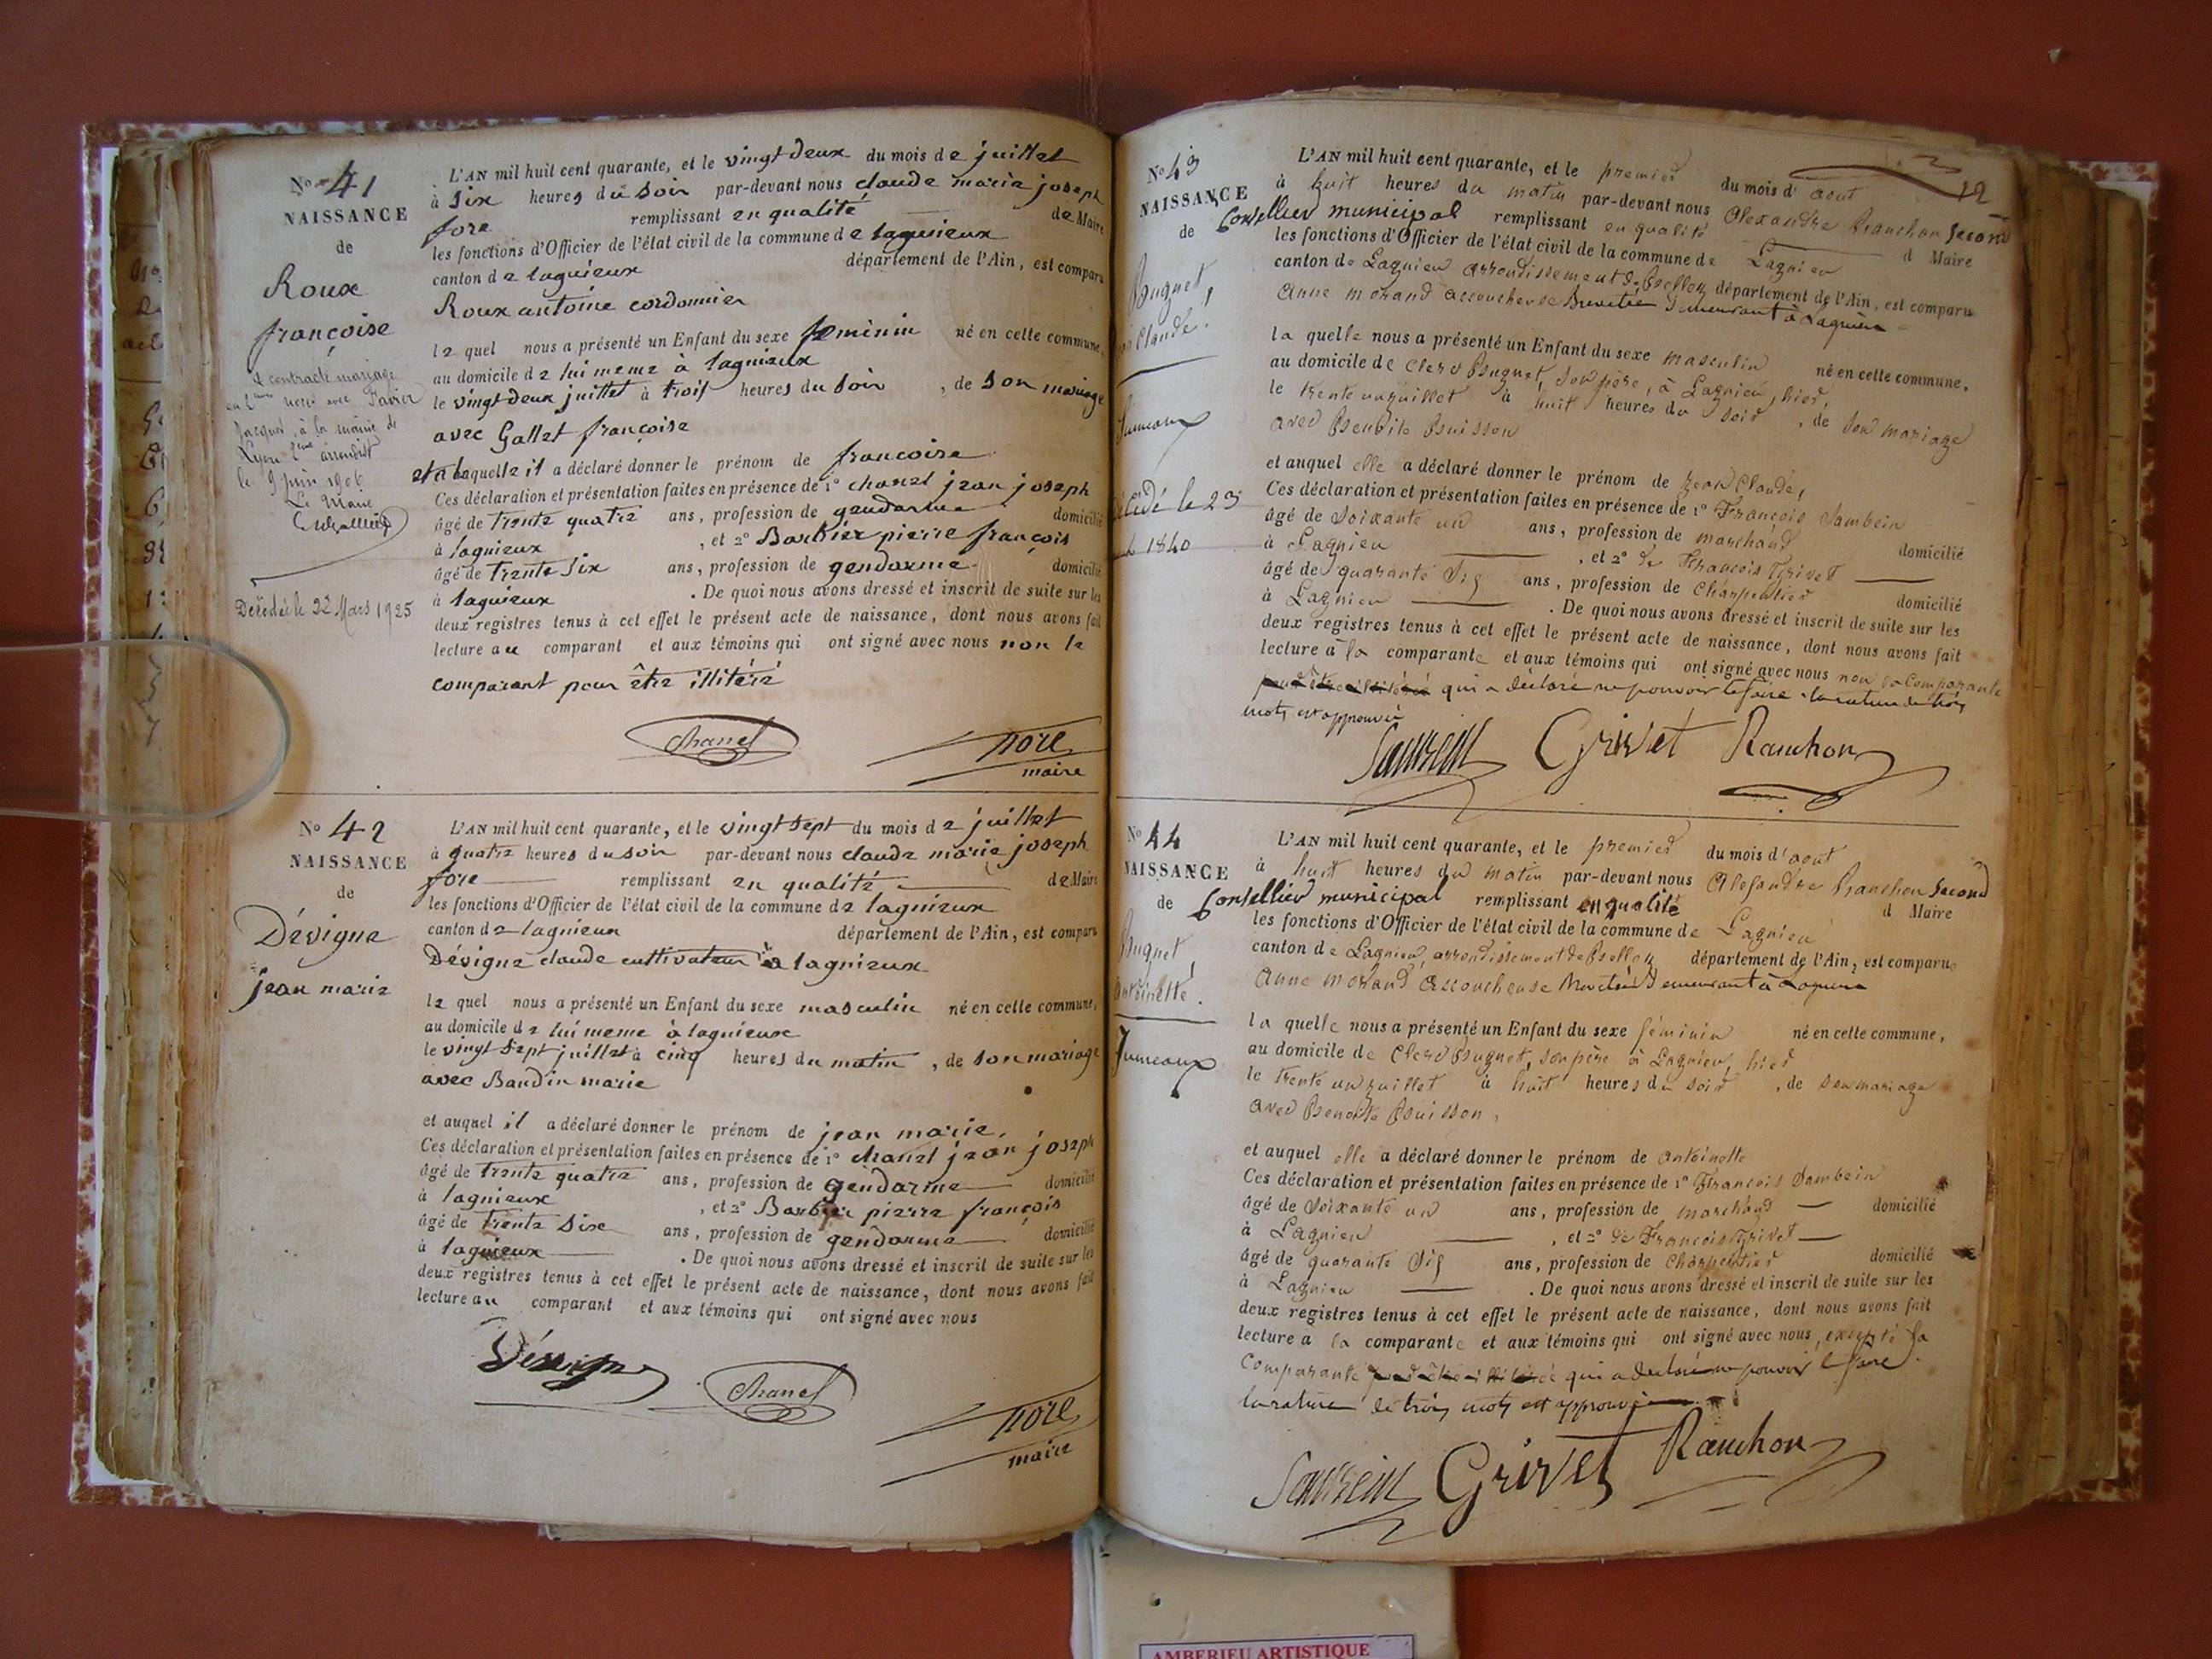 No 41
NAISSANCE
de
Roux
françoise
a contracté mariage
en 2mes noces avec Favier
Jacques, à la mairie de
Lyon 2ème arrondist
le 9 juin 1906
Le Maire
Décédée le 22 Mars 1925
L'AN mil huit cent quarante, et le vingt deux du mois de juillet
à six heures du soir par-devant nous claude marie joseph
fore remplissant en qualité de Maire
les fonctions d'Officier de l'état civil de la commune de lagnieux
canton de lagnieux département de l'Ain, est comparu
Roux antoine cordonnier
le quel nous a présenté un Enfant du sexe feminin né en cette commune,
au domicile de lui meme à lagnieux
le vingt deux juillet à trois heures du soir, de son mariage
avec Gallet françoise
et a laquelle il a déclaré donner le prénom de francoise
Ces déclaration et présentation faites en présence de 1° chanel jean joseph
âgé de trente quatre ans, profession de gendarme domicilié
à lagnieux, et 2° Barbier pierre françois
âgé de trente six ans, profession de gendarme domicilié
à lagnieux. De quoi nous avons dressé et inscrit de suite sur les
deux registres tenus à cet effet le présent acte de naissance, dont nous avons fait
lecture au comparant et aux témoins qui ont signé avec nous non le
comparant pour être illitéré
Chanel
fore
maire
No 42
NAISSANCE
de
Dévigne
jean marie
L'AN mil huit cent quarante, et le vingt sept du mois de juillet
à quatre heures du soir par-devant nous claude marie joseph
fore remplissant en qualité de Maire
les fonctions d'Officier de l'état civil de la commune de lagnieux
canton de lagnieux département de l'Ain, est comparu
Dévigne claude cultivateur à lagnieux
le quel nous a présenté un Enfant du sexe masculin né en cette commune,
au domicile de lui meme à lagnieux
le vingt sept juillet à cinq heures du matin, de son mariage
avec Baudin marie
et auquel il a déclaré donner le prénom de jean marie.
Ces déclaration et présentation faites en présence de 1° chanel jean joseph
âgé de trente quatre ans, profession de gendarme domicilié
à lagnieux, et 2° Barbier pierre françois
âgé de trente six ans, profession de gendarme domicilié
à lagnieux. De quoi nous avons dressé et inscrit de suite sur les
deux registres tenus à cet effet le présent acte de naissance, dont nous avons fait
lecture au comparant et aux témoins qui ont signé avec nous
Dévigne
Chanel
fore
maire
12
No 43
NAISSANCE
de
Buguet,
Claude.
Jumeaux
décédé le 23
1840
L'AN mil huit cent quarante, et le premier du mois d'aout
à huit heures du matin par-devant nous Alexandre Ranchon second
Conseiller municipal remplissant en qualité d Maire
les fonctions d'Officier de l'état civil de la commune de Lagnieu
canton de Lagnieu arrondissement de Belley département de l'Ain, est comparu
Anne morand accoucheuse Brevetée demeurant à Lagnieu
la quelle nous a présenté un Enfant du sexe masculin né en cette commune,
au domicile de Clerc Buguet, son père, à Lagnieu, hier,
le trente un juillet à huit heures du soir, de son mariage
avec Benoite Buisson
et auquel elle a déclaré donner le prénom de jean Claude,
Ces déclaration et présentation faites en présence de 1° François Sambein
âgé de soixante un ans, profession de marchand domicilié
à Lagnieu, et 2° de François Grivet
âgé de quarante six ans, profession de Charpentier domicilié
à Lagnieu. De quoi nous avons dressé et inscrit de suite sur les
deux registres tenus à cet effet le présent acte de naissance, dont nous avons fait
lecture à la comparante et aux témoins qui ont signé avec nous non la Comparante
pour être illitéré qui a déclaré ne pouvoir le faire. la rature de trois
mots est approuvée
Grivet Ranchon
No 44
NAISSANCE
de
Buguet,
Antoinette.
Jumeaux
L'AN mil huit cent quarante, et le premier du mois d'aout
à huit heures du matin par-devant nous Alexandre Ranchon second
Conseiller municipal remplissant en qualité d Maire
les fonctions d'Officier de l'état civil de la commune de Lagnieu
canton de Lagnieu, arrondissement de Belley département de l'Ain, est comparue
Anne morand accoucheuse Brevetée demeurant à Lagnieu
la quelle nous a présenté un Enfant du sexe féminin né en cette commune,
au domicile de Clerc Buguet, son père à Lagnieu, hier
le trente un juillet à huit heures du soir, de son mariage
avec Benoite Buisson,
et auquel elle a déclaré donner le prénom de antoinette
Ces déclaration et présentation faites en présence de 1° François Sambein
âgé de soixante un ans, profession de marchand domicilié
à Lagnieu, et 2° de François Grivet
âgé de quarante six ans, profession de Charpentier domicilié
à Lagnieu. De quoi nous avons dressé et inscrit de suite sur les
deux registres tenus à cet effet le présent acte de naissance, dont nous avons fait
lecture a la comparante et aux témoins qui ont signé avec nous, excepté la
Comparante pour être illitéré qui a déclaré ne pouvoir le faire.
la rature de trois mots est approuvée
Grivet Ranchon
AMBERIEU ARTISTIQUE